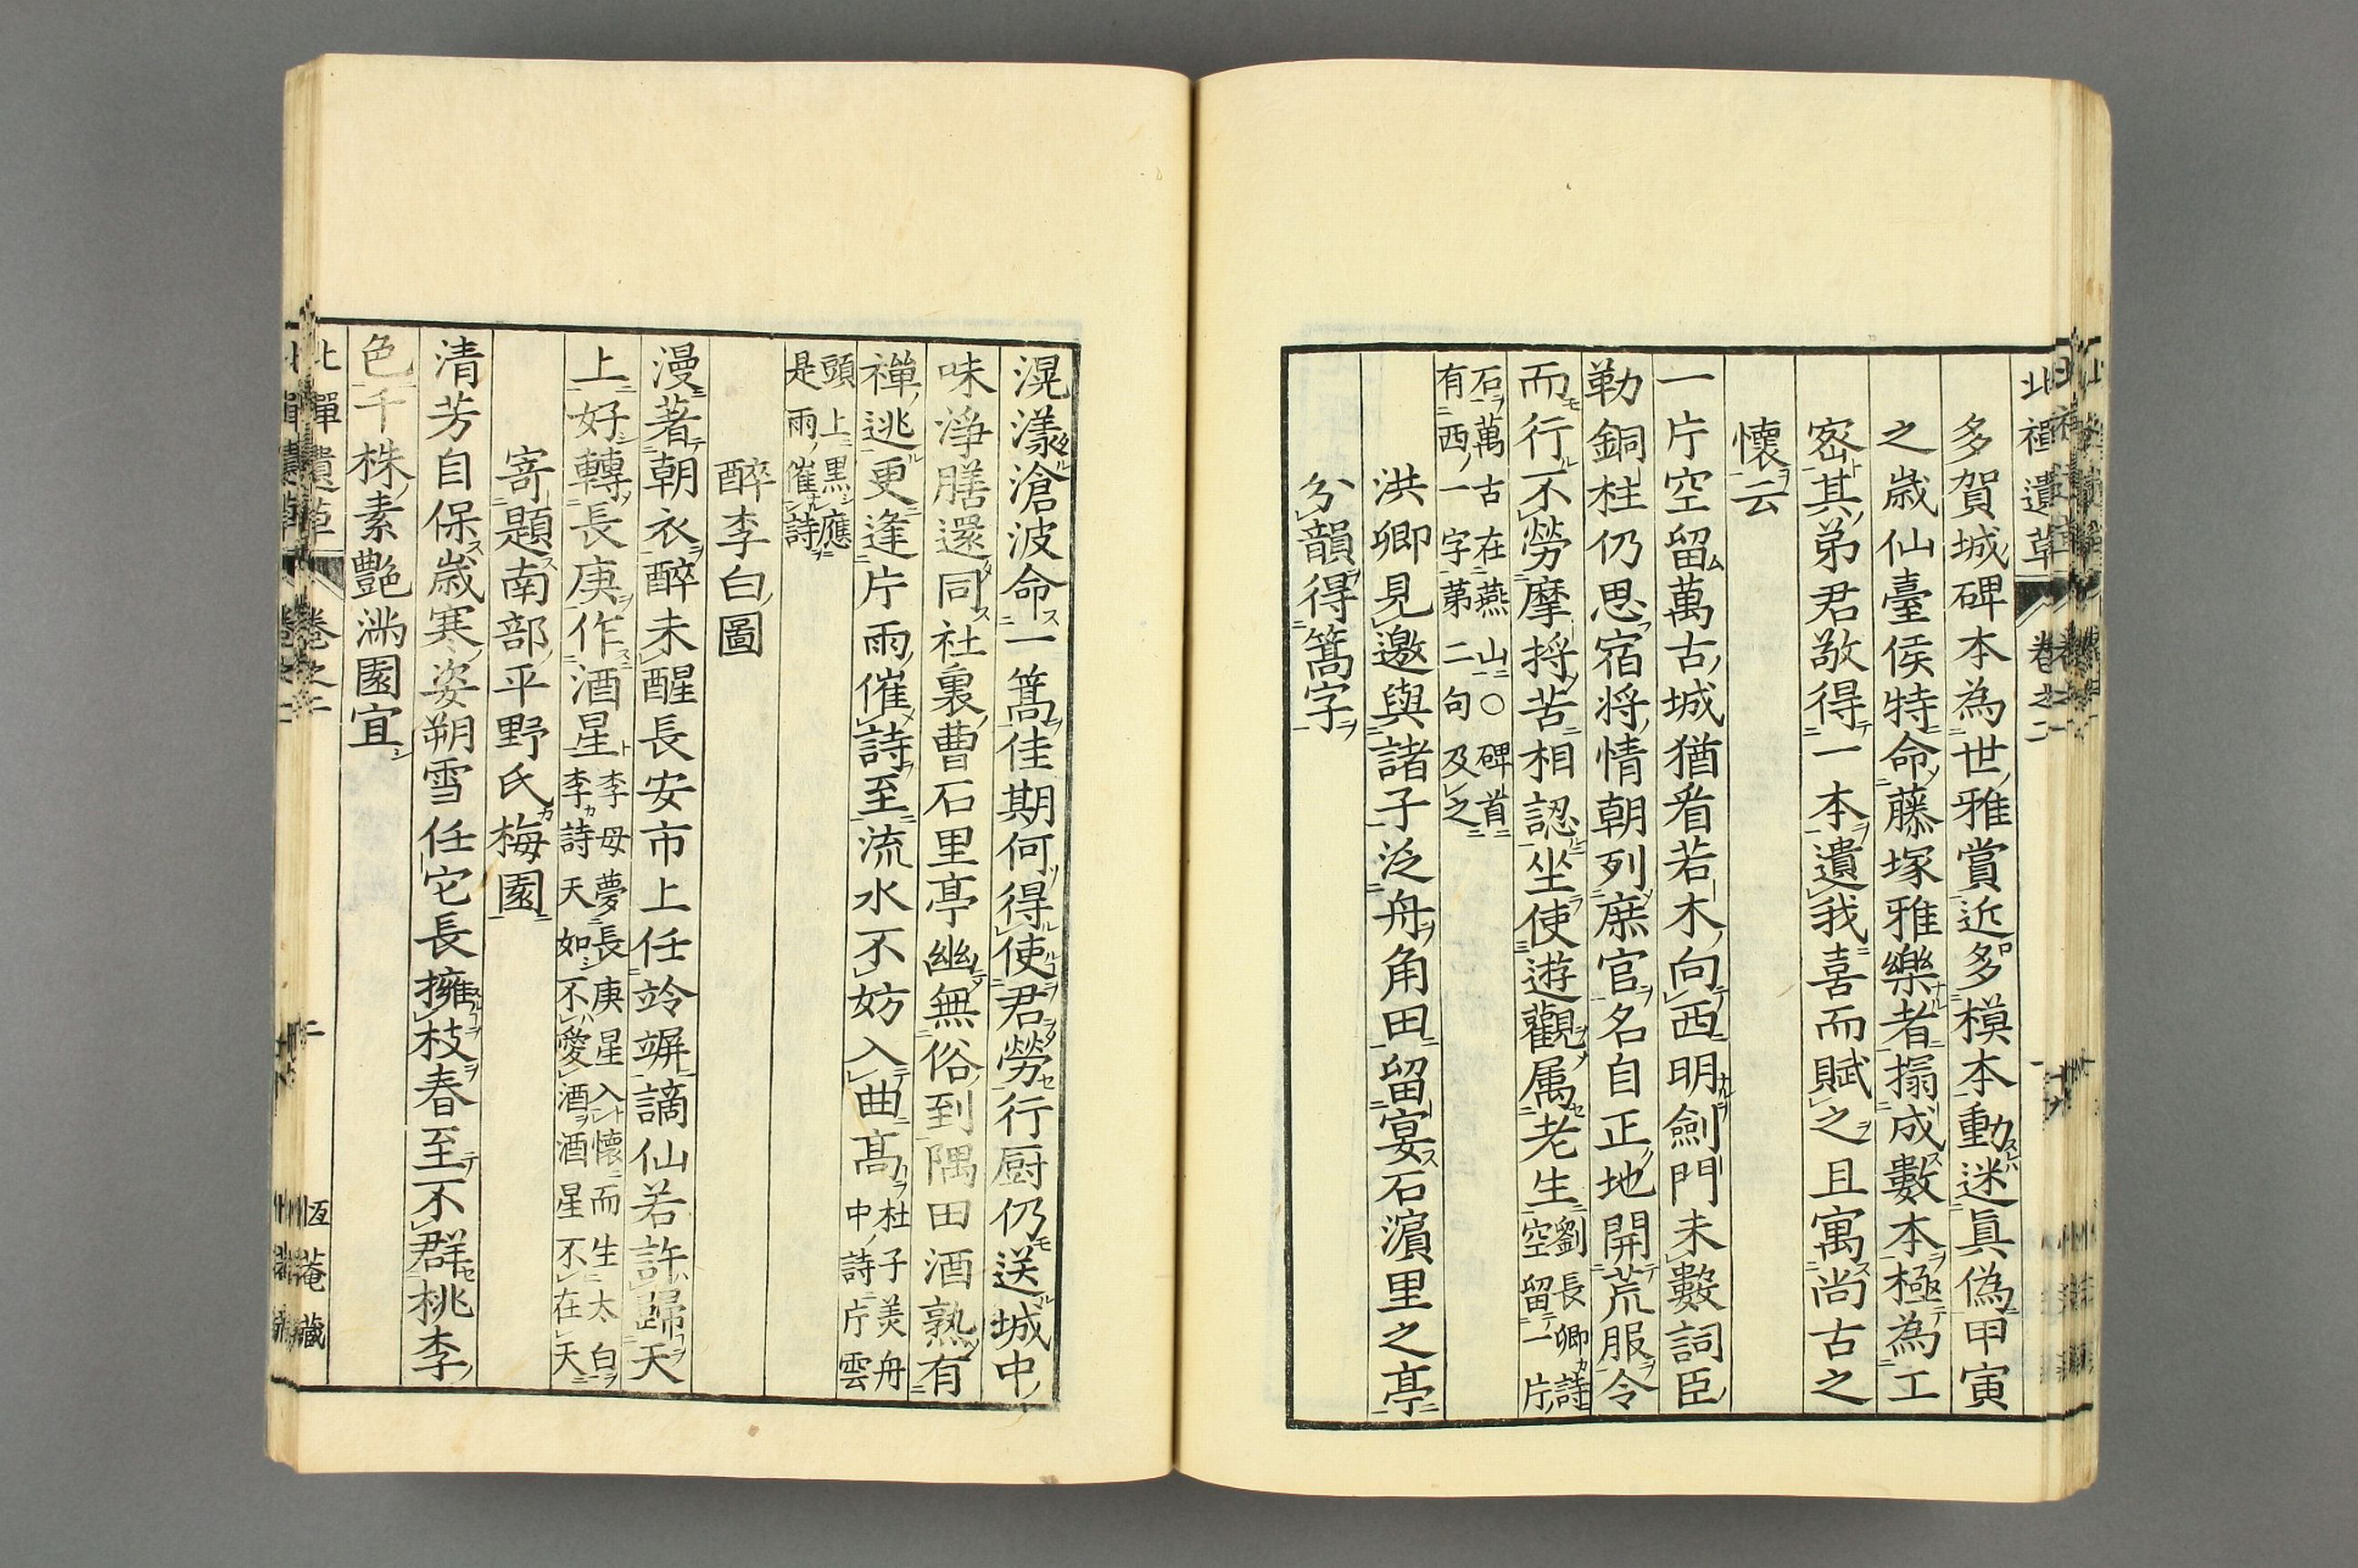 北禪遺草
卷之二
多賀城碑本為世雅賞近多模本動迷眞偽甲寅
之歳仙臺侯特命藤塚雅樂者搨成數本極為工
宻其弟君敬得一本遺我喜而賦之且寓尚古之
懷云
一片空留萬古城猶看若木向西明劍門未數詞臣
勒銅柱仍思宿将情朝列庶官名自正地開荒服令
而行不勞摩捋苦相認坐使遊觀属老生劉長卿詩空留一片
石萬古在燕山〇碑首有西一字第二句及之
洪卿見邀與諸子泛舟角田留宴石濵里之亭
分韻得篙字
滉漾滄波命一篙佳期何得使君勞行厨仍送城中
味淨膳還同社裏曹石里亭幽無俗到隅田酒熟有
禪逃更逢片雨催詩至流水不妨入曲髙杜子美舟中詩片雲
頭上黒應是雨催詩
醉李白圖
漫著朝衣醉未醒長安市上任竛竮謫仙若許歸天
上好轉長庚作酒星李母夢長庚星入懷而生太白李詩天如不愛酒酒星不在天
寄題南部平野氏梅園
清芳自保歳寒姿朔雪任它長擁枝春至不群桃李
色千株素艷滿園宜
北禪遺草
卷之二